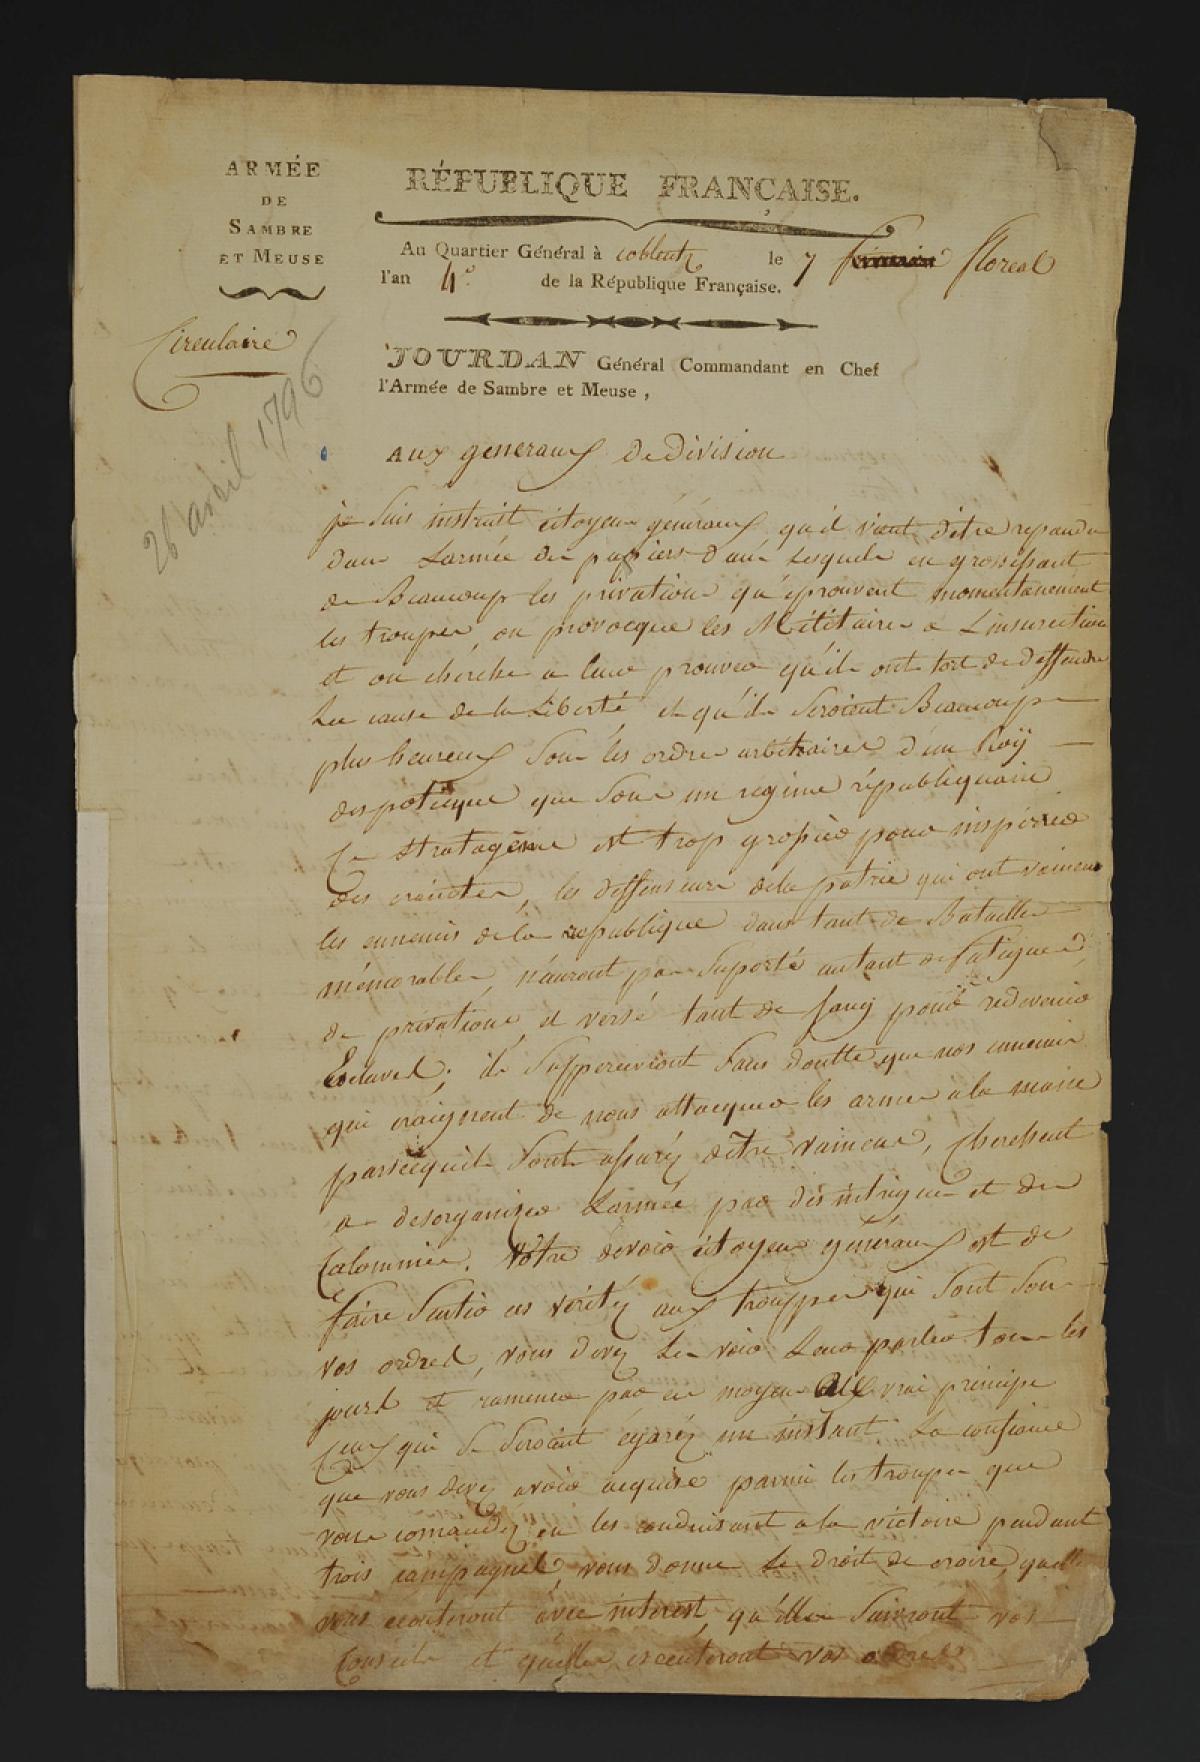 ARMÉE
DE
SAMBRE
ET MEUSE
RÉPUBLIQUE FRANÇAISE.
Au Quartier Général à coblentz le 7 floreal
l'an 4e. de la République Française.
Circulaire
26 avril 1796
JOURDAN Général Commandant en Chef
l'Armée de Sambre et Meuse,
aux generaux de division
je suis instruit citoyens généraux qu'il vient d'etre repandu
dans L'armée des papiers dans lesquels en grossissant
de Beaucoup les privations qu'eprouvent momentanement
les troupes, on provocque les Militaires a L'insurection
et on cherche a leur prouver qu'ils ont tort de deffendre
La cause de la Liberté, et qu'ils seroient Beaucoup
plus heureux sous les ordres arbitraires d'un Roÿ
despoticque que sous un regime républiquain
Ce stratagême est trop grossier pour inspirer
des craintes, les deffenseurs de la patrie qui ont vaincus
les ennemis de la republique dans tant de Batailles
mémorables, n'auront pas suporté autant de fatigues,
de privations, et versé tant de sang pour redevenir
Esclaves; ils s'apperceveront sans doutte que nos ennemis
qui craignent de nous attacquer les armes a la main
parcequils sont assuréz dêtre vaincus, Cherchent
a desorganizer L'armée par des intrigues et des
Calomnies. Vôtre devoir citoyens généraux est de
faire sentir ces véritéz aux trouppes qui sont sous
vos ordres, vous devez Les voir Leur parler tous les
jours et ramener par ce moyen au vrai principe
Ceux qui se seroient égaréz un instant. La confiance
que vous devez avoir acquise parmi les troupes que
vous comandéz en les conduisant a la victoire pendant
trois campagnes vous donne Le droit de croire, qu'elles
vous ecouteront avec interest, qu'elles suivront vos
Conseils et qu'elles executeront vos ordres